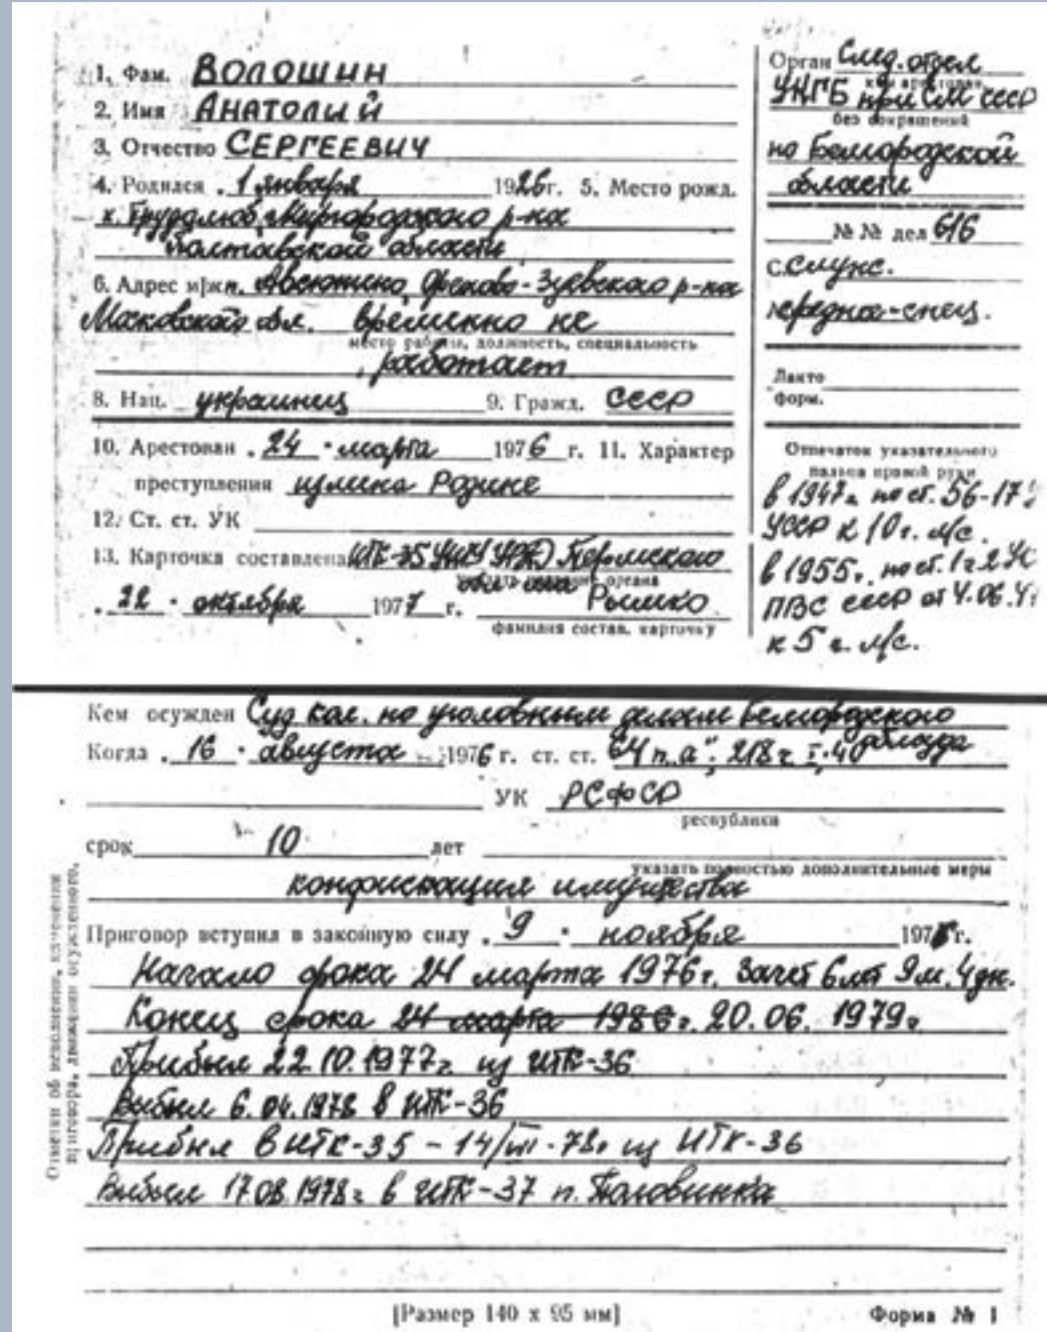 1. Фам. ВОЛОШИН
2. Имя АНАТОЛИЙ
3. Отчество СЕРГЕЕВИЧ
4. Родился . 1 января 1926г. 5. Место рожд.
х. Трудолюб, Миргородского р-на
Полтавской области
6. Адрес п. Авсюнино, Орехово-Зуевского р-на
Московской обл. временно не
место работы, должность, специальность
работает
8. Нац. украинец 9. Гражд. СССР
10. Арестован . 24 . марта 1976 г. 11. Характер
преступления измена Родине
12. Ст. ст. УК
13. Карточка составлена ИТК-35 Пермского
указать название органа
. 22 . октября 1977 г. Рышко
фамилия состав. карточку
Орган След. отдел
УКГБ при СМ СССР
без сокращений
по Белгородской
области
№ № дел 616
С. служ.
средне-спец.
Дакто
форм.
Отпечаток указательного
пальца правой руки
в 1947г. по ст. 56-17
УССР к 10 г. л/с.
в 1955г. по ст. 1 ч 2 УС
ПВС СССР от 4.06.4
к 5 г. л/с.
Кем осужден Суд кол. по уголовным делам Белгородского
облсуда
Когда . 16 . августа 1976 г. ст. ст. 64 п. "а", 218 ч I, 40
УК РСФСР
республики
срок 10 лет
указать полностью дополнительные меры
конфискация имущества
Приговор вступил в законную силу . 9 . ноября 197 г.
Начало срока 24 марта 1976г. Зачет 6 лет 9 м. 4 дн.
Конец срока 24 марта 1986г. 20.06. 1979г
Прибыл 22.10.1977г из ИТК-36
Выбыл 6.04.1978 в ИТК-36
Прибыл в ИТК-35 - 14/VII-78г из ИТК-36
Выбыл 17.08.1978г в ИТК-37 п. Половинка
Отметки об исполнении, изменении
приговора, движении осужденного.
[Размер 140 x 95 мм] Форма № 1